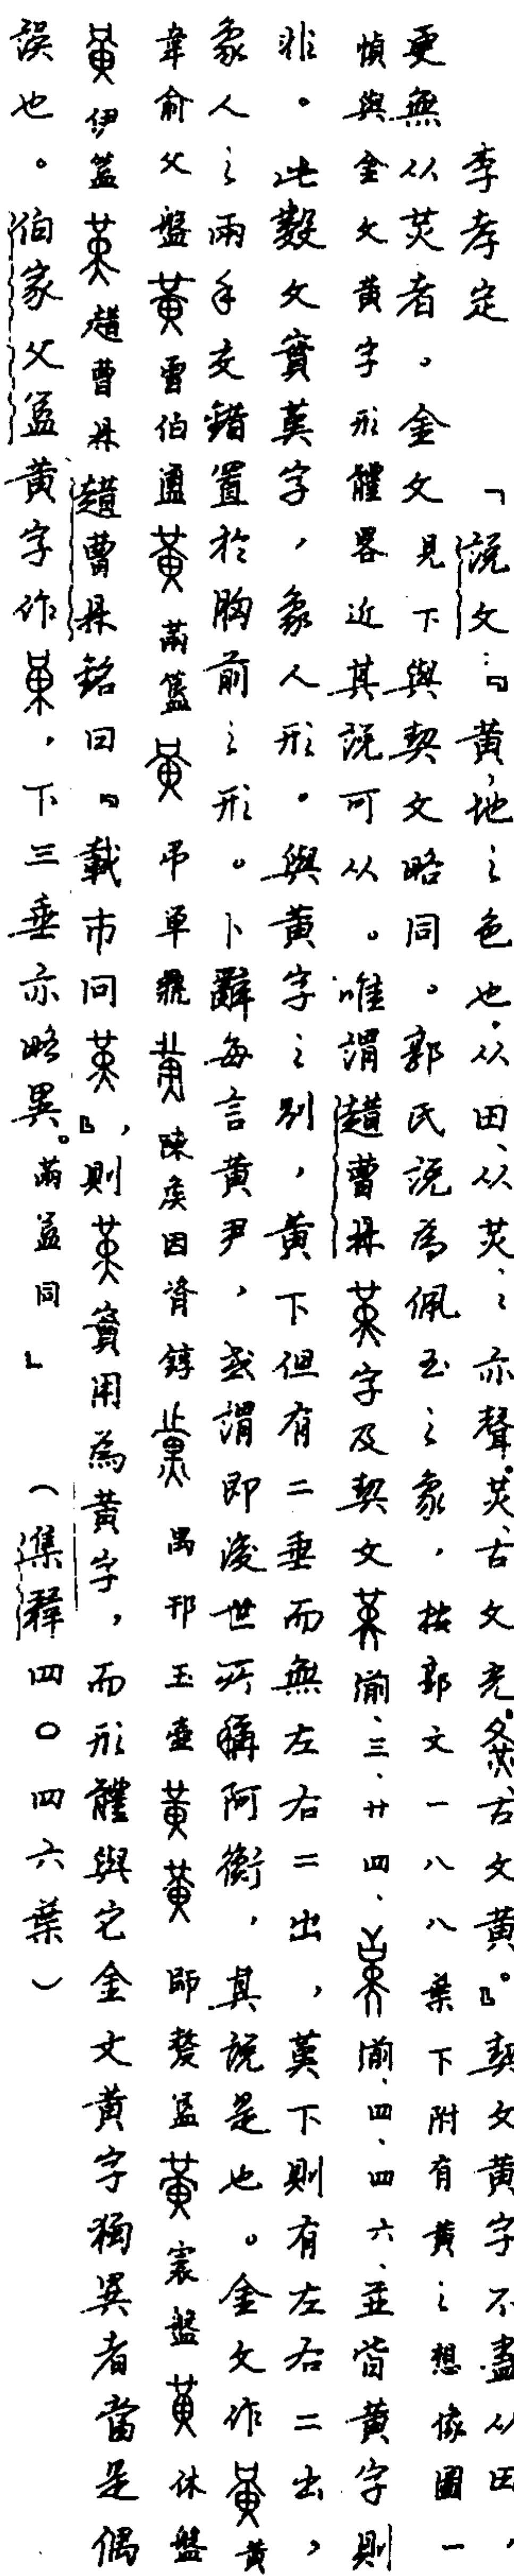 李孝定　「說文：『黃，地之色也。从田、从炗、炗亦聲。炗、古文光。、古文黃。』契文黃字不盡从田，
更無从炗者。金文見下與契文略同。郭氏說為佩玉之象，按郭文一八八葉下附有黃之想像圖一
幀與金文黃字形體畧近其說可从。唯謂趞曹鼎字及契文前、三、廿四、前、四、四六、並皆黃字則
非。此數文實莫字，象人形。與黃字之別，黃下但有二垂而無左右二出，莫下則有左右二出，
象人之兩手交錯置於胸前之形。卜辭每言黃尹，或謂即後世所稱阿衡，其說是也。金文作黃
韋俞父盤雷伯盨㒼簋弔單鼎陳侯因𬺈錞禺邗王壺師𠭰簋㝨盤休盤
伊簋趞曹鼎趞曹鼎銘曰『載市冋』，則實用為黃字，而形體與它金文黃字獨異者當是偶
誤也。伯家父簋黃字作，下三垂亦略異。㒼簋同」　（集釋四〇四六葉）